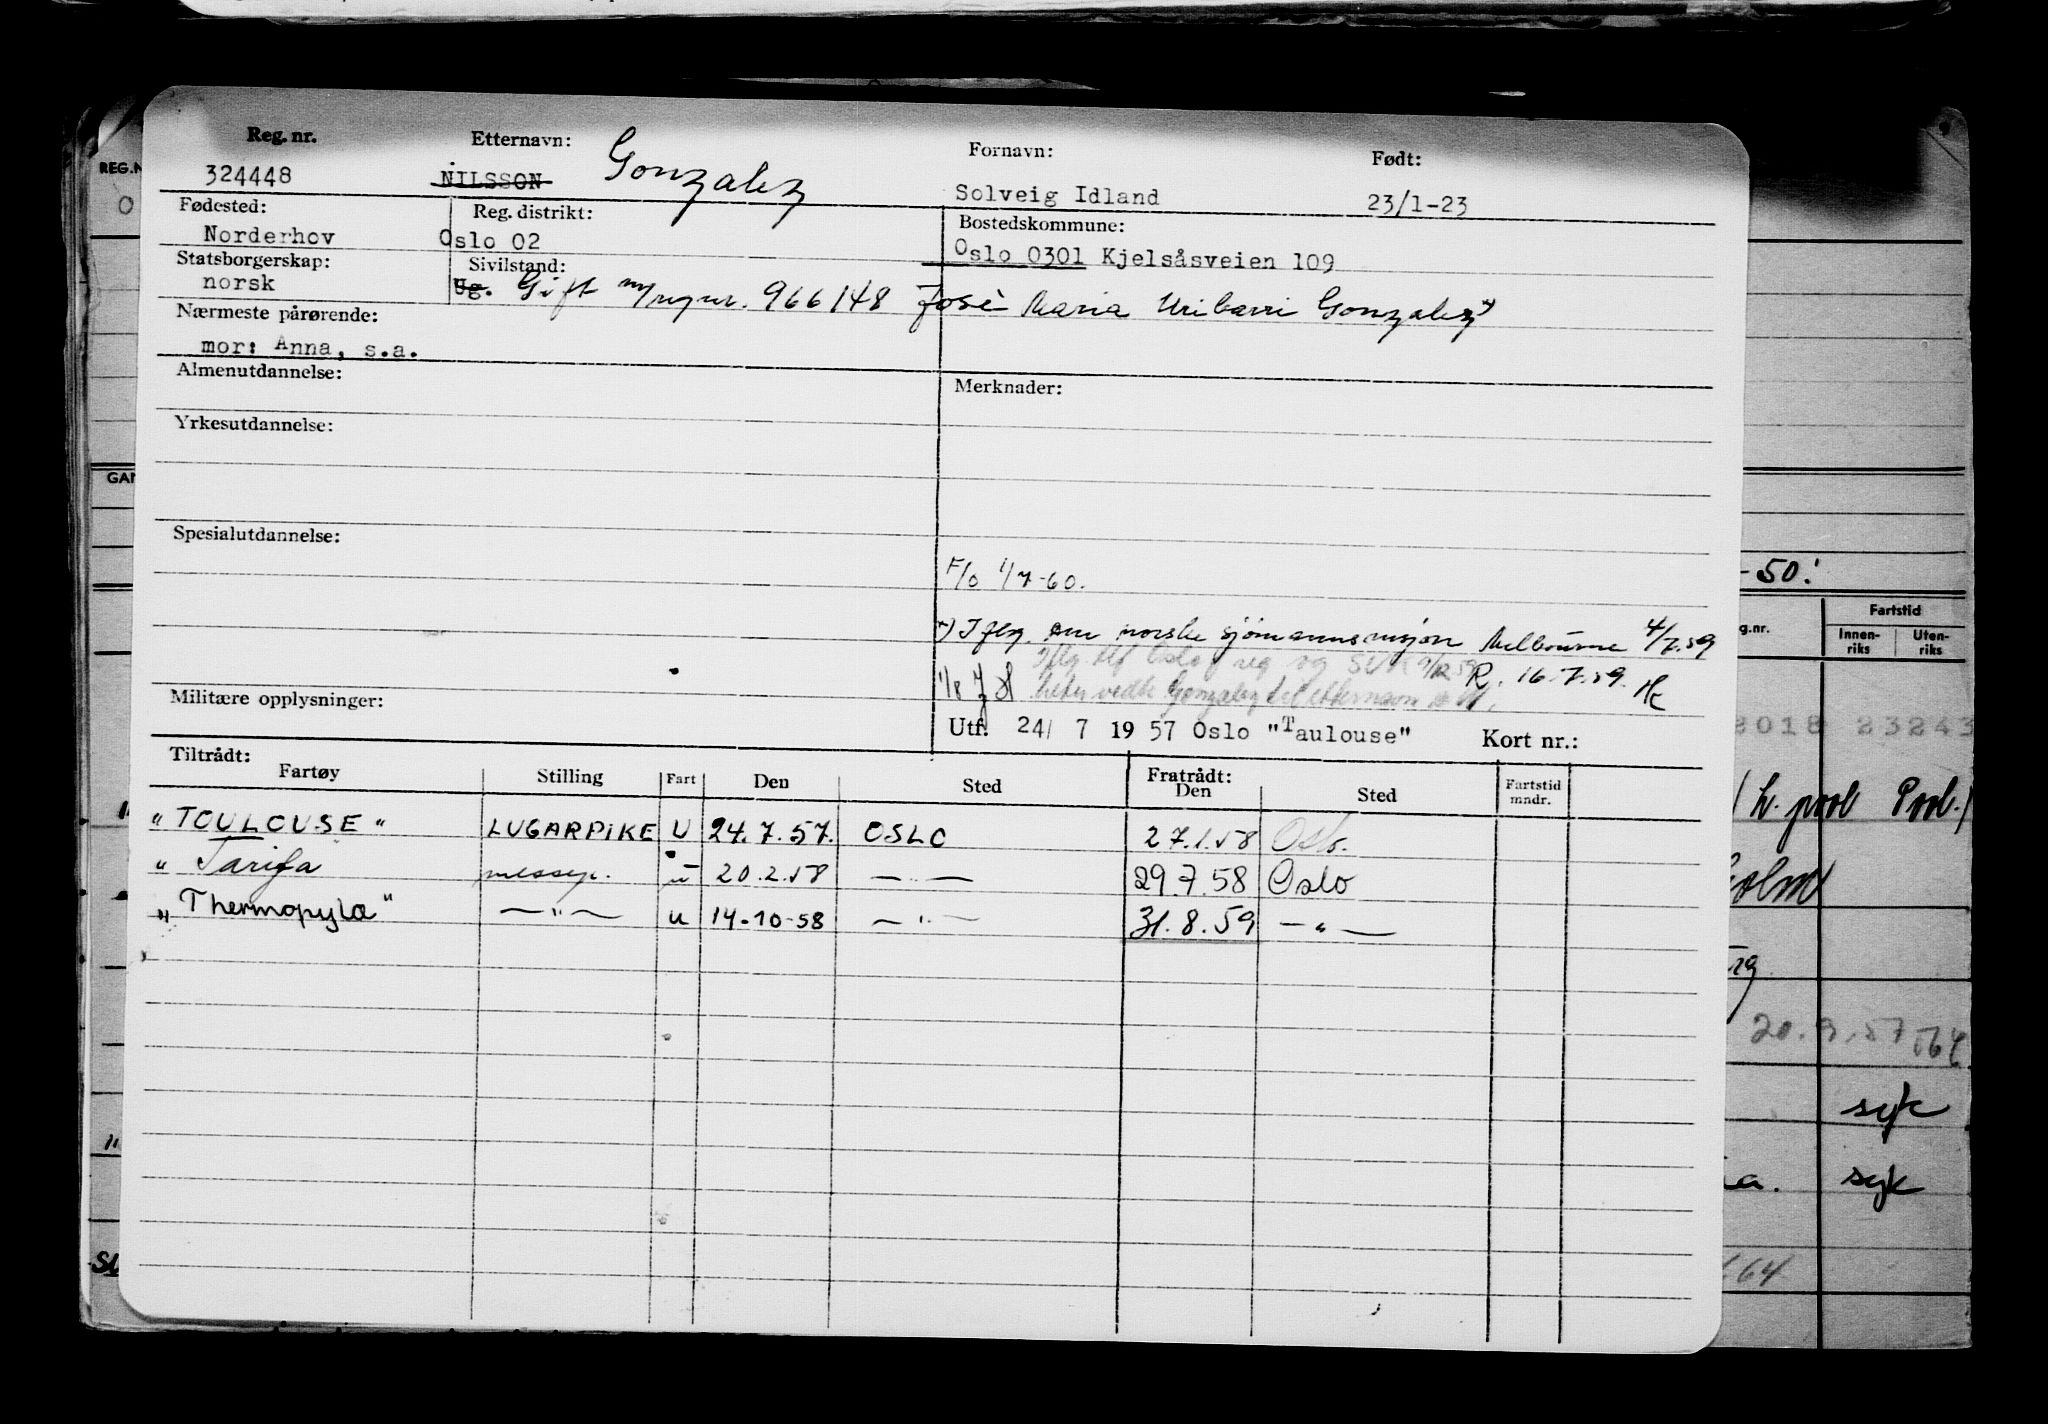 Reg. nr. Etternavn: Gonzalez Fornavn: Født:
324448 NILSSON Solveig Idland 23/1-23
Fødested: Reg. distrikt: Bostedskommune:
Norderhov Oslo 02 Oslo 0301 Kjelsåsveien 109
Statsborgerskap: Sivilstand:
norsk Ug. Gift m/regnr. 966148 José Maria Uribarri Gonzalez *)
Nærmeste pårørende:
mor: Anna, s.a.
Almenutdannelse: Merknader:
Yrkesutdannelse:
Spesialutdannelse:
F/O 1/7-60.
*) Iflg. den norske sjömannsmisjon Melbourne 4/7.59
Iflg. tlf Oslo reg og SUK 9/12 59 R. 16.7.59. HC
1/8 heter vedk Gonzalez til etternavn
Militære opplysninger:
Utf. 24/ 7 1957 Oslo "Taulouse" Kort nr.:
Tiltrådt: Fratrådt:
Fartøy Stilling Fart Den Sted Den Sted Fartstid mndr.
"TOULOUSE" LUGARPIKE U 24.7.57. OSLO 27.1.58 Oslo.
" Tarifa messep. u 20.2.58 — " — 29.7.58 Oslo
"Thermopylæ" — " — u 14-10-58 — " — 31.8.59 — " —
REG.N
O
GAN
-50!
g.nr. Fartstid
Innen-riks Uten-riks
2018 23243
holm
20.9.57
syk
a. syk
64